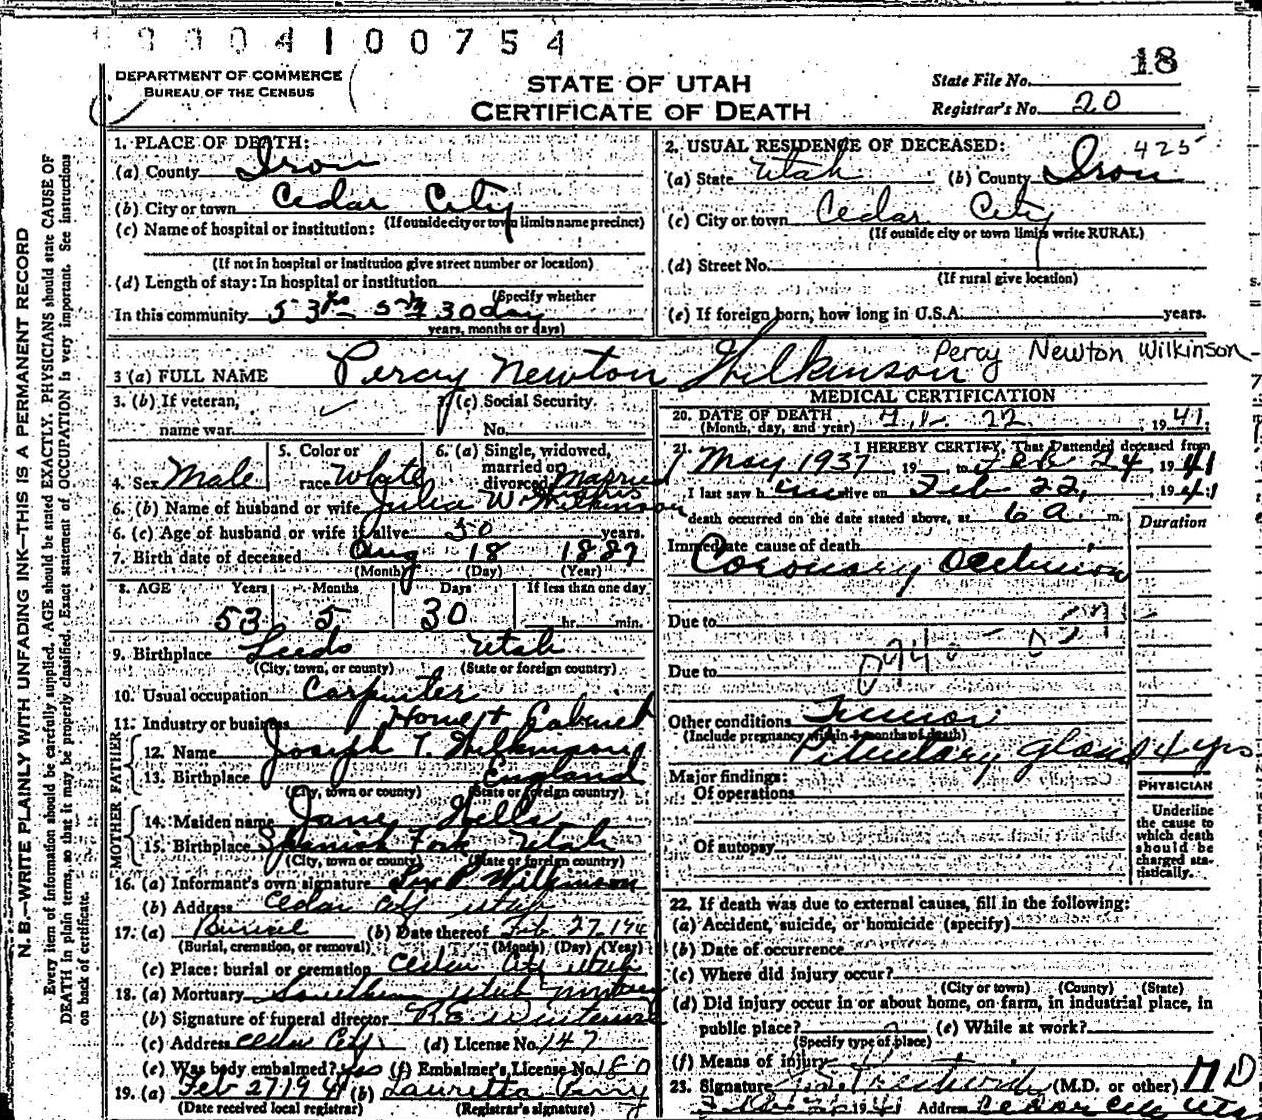 9 0 0 4 1 0 0 7 5 4
18
DEPARTMENT OF COMMERCE
BUREAU OF THE CENSUS
STATE OF UTAH
CERTIFICATE OF DEATH
State File No.
Registrar's No. 20
N. B.—WRITE PLAINLY WITH UNFADING INK—THIS IS A PERMANENT RECORD
Every item of information should be carefully supplied. AGE should be stated EXACTLY. PHYSICIANS should state CAUSE OF
DEATH in plain terms, so that it may be properly classified. Exact statement of OCCUPATION is very important. See instructions
on back of certificate.
1. PLACE OF DEATH:
(a) County Iron
(b) City or town Cedar City
(If outside city or town limits name precinct)
(c) Name of hospital or institution:
(If not in hospital or institution give street number or location)
(d) Length of stay: In hospital or institution
(Specify whether
In this community 53 yrs 5 M 30 day
years, months or days)
2. USUAL RESIDENCE OF DECEASED: 425
(a) State Utah (b) County Iron
(c) City or town Cedar City
(If outside city or town limits write RURAL)
(d) Street No.
(If rural give location)
(e) If foreign born, how long in U.S.A. years.
3 (a) FULL NAME Percy Newton Wilkinson Percy Newton Wilkinson
3. (b) If veteran, 3. (c) Social Security
name war No.
4. Sex Male 5. Color or race White 6. (a) Single, widowed, married or divorced Married
6. (b) Name of husband or wife Julia W. Wilkinson
6. (c) Age of husband or wife if alive 50 years.
7. Birth date of deceased Aug 18 1887
(Month) (Day) (Year)
8. AGE Years Months Days If less than one day
53 5 30 hr. min.
9. Birthplace Leeds Utah
(City, town, or county) (State or foreign country)
10. Usual occupation Carpenter
11. Industry or business Home & Cabinet
FATHER
12. Name Joseph T. Wilkinson
13. Birthplace England
(City, town or county) (State or foreign country)
MOTHER
14. Maiden name Jane Wells
15. Birthplace Spanish Fork Utah
(City, town or county) (State or foreign country)
16. (a) Informant's own signature P. Wilkinson
(b) Address Cedar City Utah
17. (a) Burial (b) Date thereof Feb 27, 194
(Burial, cremation, or removal) (Month) (Day) (Year)
(c) Place: burial or cremation Cedar City Utah
18. (a) Mortuary Southern Utah Mortuary
(b) Signature of funeral director
(c) Address Cedar City (d) License No. 147
(e) Was body embalmed? yes (f) Embalmer's License No. 180
19. (a) Feb 27 1941 (b) Lauretta Perry
(Date received local registrar) (Registrar's signature)
MEDICAL CERTIFICATION
20. DATE OF DEATH Feb 22, 1941
(Month, day, and year)
21. I HEREBY CERTIFY, That I attended deceased from
May 1937, 19 to Feb 24 1941
I last saw him alive on Feb 22, 1941
death occurred on the date stated above, at 6 a. m.
Duration
Immediate cause of death
Coronary Occlusion
Due to
Due to 094
Other conditions Tumor
(Include pregnancy within 3 months of death)
Pituitary gland 4 yrs
Major findings:
Of operations
Of autopsy
PHYSICIAN
Underline
the cause to
which death
should be
charged sta-
tistically.
22. If death was due to external causes, fill in the following:
(a) Accident, suicide, or homicide (specify)
(b) Date of occurrence
(c) Where did injury occur?
(City or town) (County) (State)
(d) Did injury occur in or about home, on farm, in industrial place, in
public place? (e) While at work?
(Specify type of place)
(f) Means of injury
23. Signature (M.D. or other) M D
1941 Address Cedar City Utah